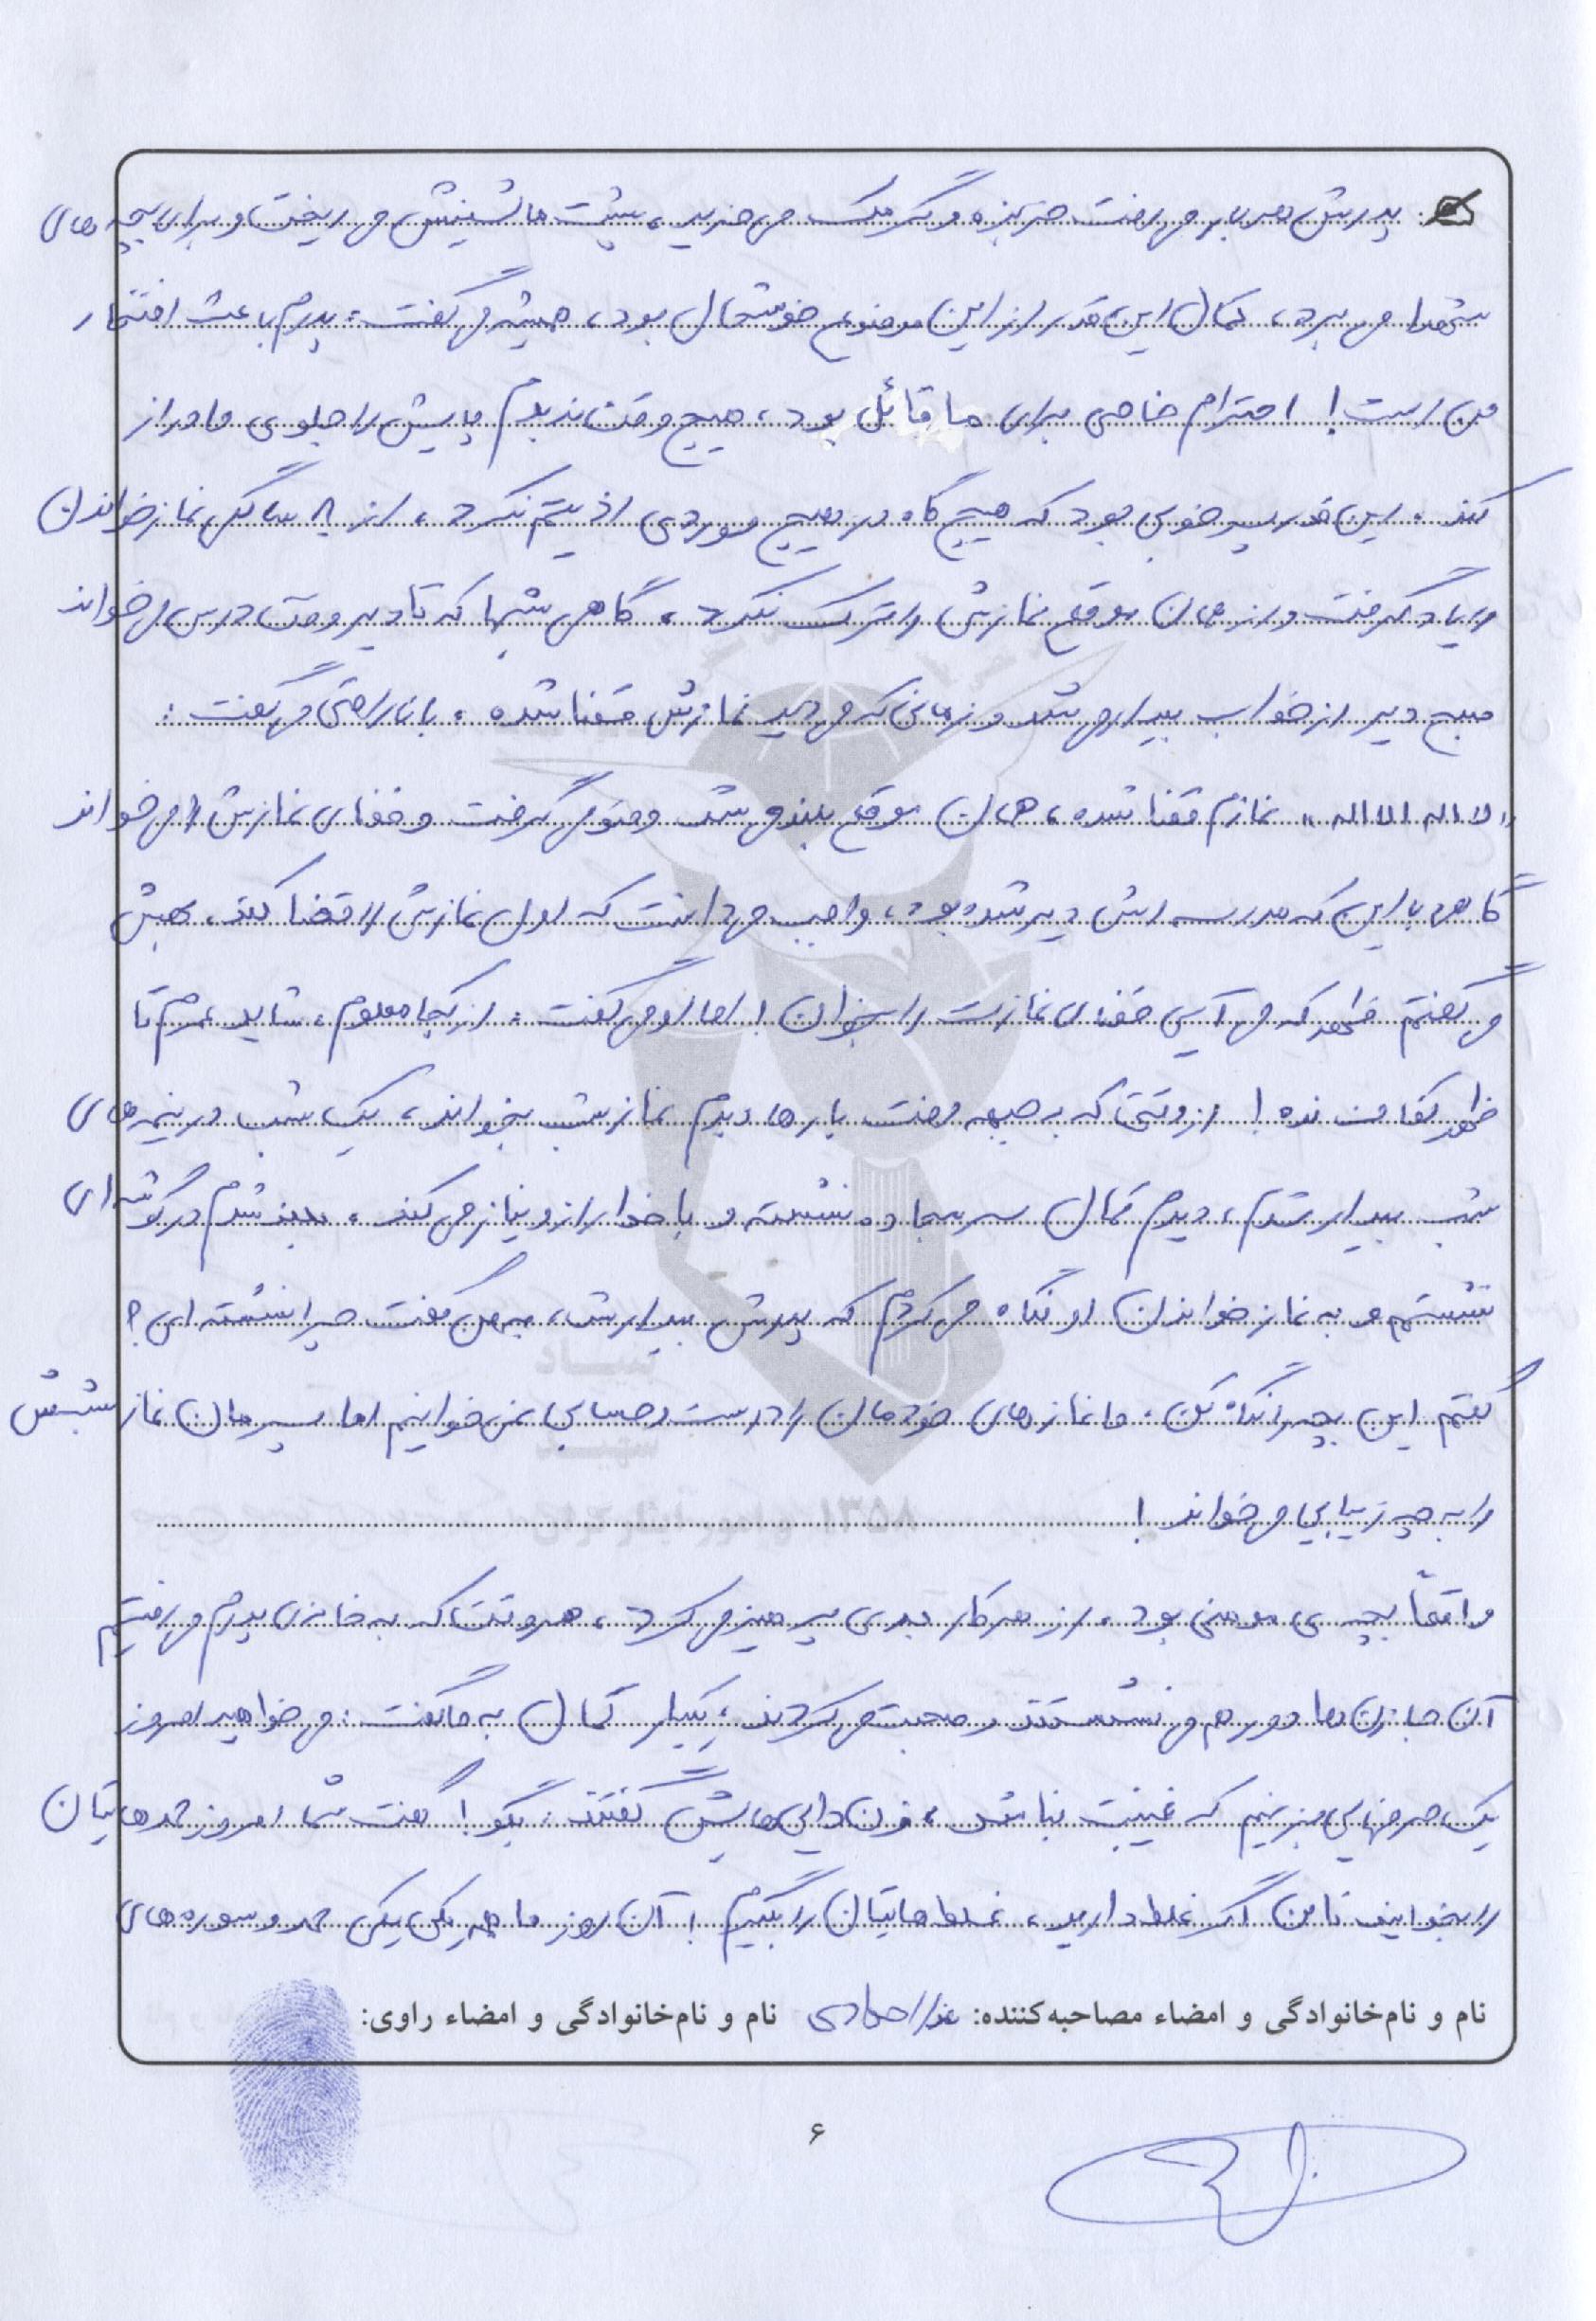 پدرش هر بار می رفت خربزه و گرمک می خرید، پشت ماشینش می ریخت و برای بچه های
شهدا می برد، کمال این قدر از این موضوع خوشحال بود، همیشه می گفت: پدرم باعث افتخار
من است! احترام خاصی برای ما قائل بود، هیچ وقت ندیدم پایش را جلوی ما دراز
کند. این قدر پسر خوبی بود که هیچ گاه در هیچ موردی اذیتم نکرد، از ۸ سالگی نماز خواندن
را یاد گرفت و از همان موقع نمازش را ترک نکرد، گاهی شبها که تا دیر وقت درس می خواند
صبح دیر از خواب بیدار می شد و زمانی که می دید نمازش قضا شده، با ناراحتی می گفت:
«لا اله الا اله» نمازم قضا شده، همان موقع بلند می شد وضو می گرفت و قضای نمازش را می خواند
گاهی با این که مدرسه اش دیر شده بود، واجب می دانست که اول نمازش را قضا کند، بهش
می گفتم ظهر که می آیی قضای نمازت را بخوان! اما او می گفت: از کجا معلوم، شاید عمرم تا
ظهر کفاف نده! از وقتی که به جبهه رفت بارها دیدم نماز شب بخواند، یک شب در نیمه های
شب بیدار شدم، دیدم کمال سر سجاده نشسته و با خدا راز و نیاز می کند، بلند شدم در گوشه ای
نشستم و به نماز خواندن او نگاه می کردم که پدرش بیدار شد، به من گفت چرا نشسته ای؟
گفتم این بچه را نگاه کن، ما نماز های خودمان را درست و حسابی نمی خوانیم اما پسرمان نماز شبش
را به چه زیبایی می خواند!
واقعاً بچه ی مومنی بود، از هر کار بدی پرهیز می کرد، هر وقت که به خانه ی پدرم می رفتیم
آن جا زن ها دور هم می نشستند و صحبت می کردند، یکبار کمال به ما گفت: می خواهید امروز
یک حرفهایی بزنیم که غیبت نباشد، زن دایی هایش گفتند: بگو! گفت شما امروز حمدهایتان
را بخوانید تا من اگر غلط دارید، غلط هایتان را بگیرم! آن روز ما همه یکی یکی حمد و سوره های
نام و نام‌خانوادگی و امضاء مصاحبه‌کننده: نام و نام‌خانوادگی و امضاء راوی:
۶